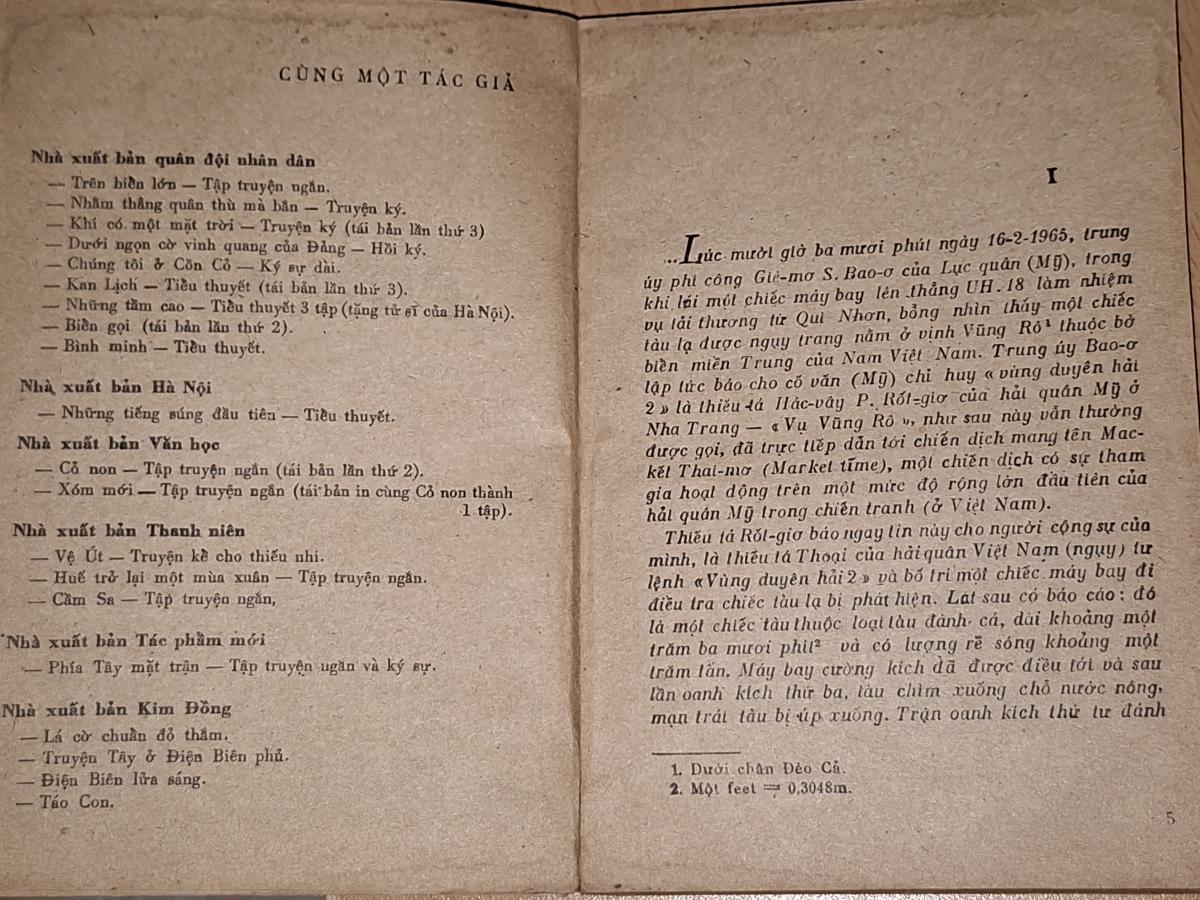 CÙNG MỘT TÁC GIẢ
Nhà xuất bản quân đội nhân dân
— Trên biển lớn — Tập truyện ngắn.
— Nhằm thẳng quân thù mà bắn — Truyện ký.
— Khi có một mặt trời — Truyện ký (tái bản lần thứ 3)
— Dưới ngọn cờ vinh quang của Đảng — Hồi ký.
— Chúng tôi ở Cồn Cỏ — Ký sự dài.
— Kan Lịch — Tiểu thuyết (tái bản lần thứ 3).
— Những tầm cao — Tiểu thuyết 3 tập (tặng tử sĩ của Hà Nội).
— Biển gọi (tái bản lần thứ 2).
— Bình minh — Tiểu thuyết.
Nhà xuất bản Hà Nội
— Những tiếng súng đầu tiên — Tiểu thuyết.
Nhà xuất bản Văn học
— Cỏ non — Tập truyện ngắn (tái bản lần thứ 2).
— Xóm mới — Tập truyện ngắn (tái bản in cùng Cỏ non thành
1 tập).
Nhà xuất bản Thanh niên
— Vệ Út — Truyện kể cho thiếu nhi.
— Huế trở lại một mùa xuân — Tập truyện ngắn.
— Cầm Sa — Tập truyện ngắn,
Nhà xuất bản Tác phẩm mới
— Phía Tây mặt trận — Tập truyện ngắn và ký sự.
Nhà xuất bản Kim Đồng
— Lá cờ chuẩn đỏ thắm.
— Truyện Tây ở Điện Biên phủ.
— Điện Biên lửa sáng.
— Táo Con.
I
...Lúc mười giờ ba mươi phút ngày 16-2-1965, trung
úy phi công Giê-mơ S. Bao-ơ của Lục quân (Mỹ), trong
khi lái một chiếc máy bay lên thẳng UH.18 làm nhiệm
vụ tải thương từ Qui Nhơn, bỗng nhìn thấy một chiếc
tàu lạ được ngụy trang nằm ở vịnh Vũng Rô¹ thuộc bờ
biển miền Trung của Nam Việt Nam. Trung úy Bao-ơ
lập tức báo cho cố vấn (Mỹ) chỉ huy «vùng duyên hải
2» là thiếu tá Hác-vây P. Rốt-giơ của hải quân Mỹ ở
Nha Trang — «Vụ Vũng Rô», như sau này vẫn thường
được gọi, đã trực tiếp dẫn tới chiến dịch mang tên Mac-
kết Thai-mơ (Market tîme), một chiến dịch có sự tham
gia hoạt động trên một mức độ rộng lớn đầu tiên của
hải quân Mỹ trong chiến tranh (ở Việt Nam).
Thiếu tá Rốt-giơ báo ngay tin này cho người cộng sự của
mình, là thiếu tá Thoại của hải quân Việt Nam (ngụy) tư
lệnh «Vùng duyên hải 2» và bố trí một chiếc máy bay đi
điều tra chiếc tàu lạ bị phát hiện. Lát sau có báo cáo: đó
là một chiếc tàu thuộc loại tàu đánh cá, dài khoảng một
trăm ba mươi phit² và có lượng rẽ sóng khoảng một
trăm tấn. Máy bay cường kích đã được điều tới và sau
lần oanh kích thứ ba, tàu chìm xuống chỗ nước nông,
mạn trái tàu bị úp xuống. Trận oanh kích thứ tư đánh
1. Dưới chân Đèo Cả.
2. Một feet = 0,3048m.
5